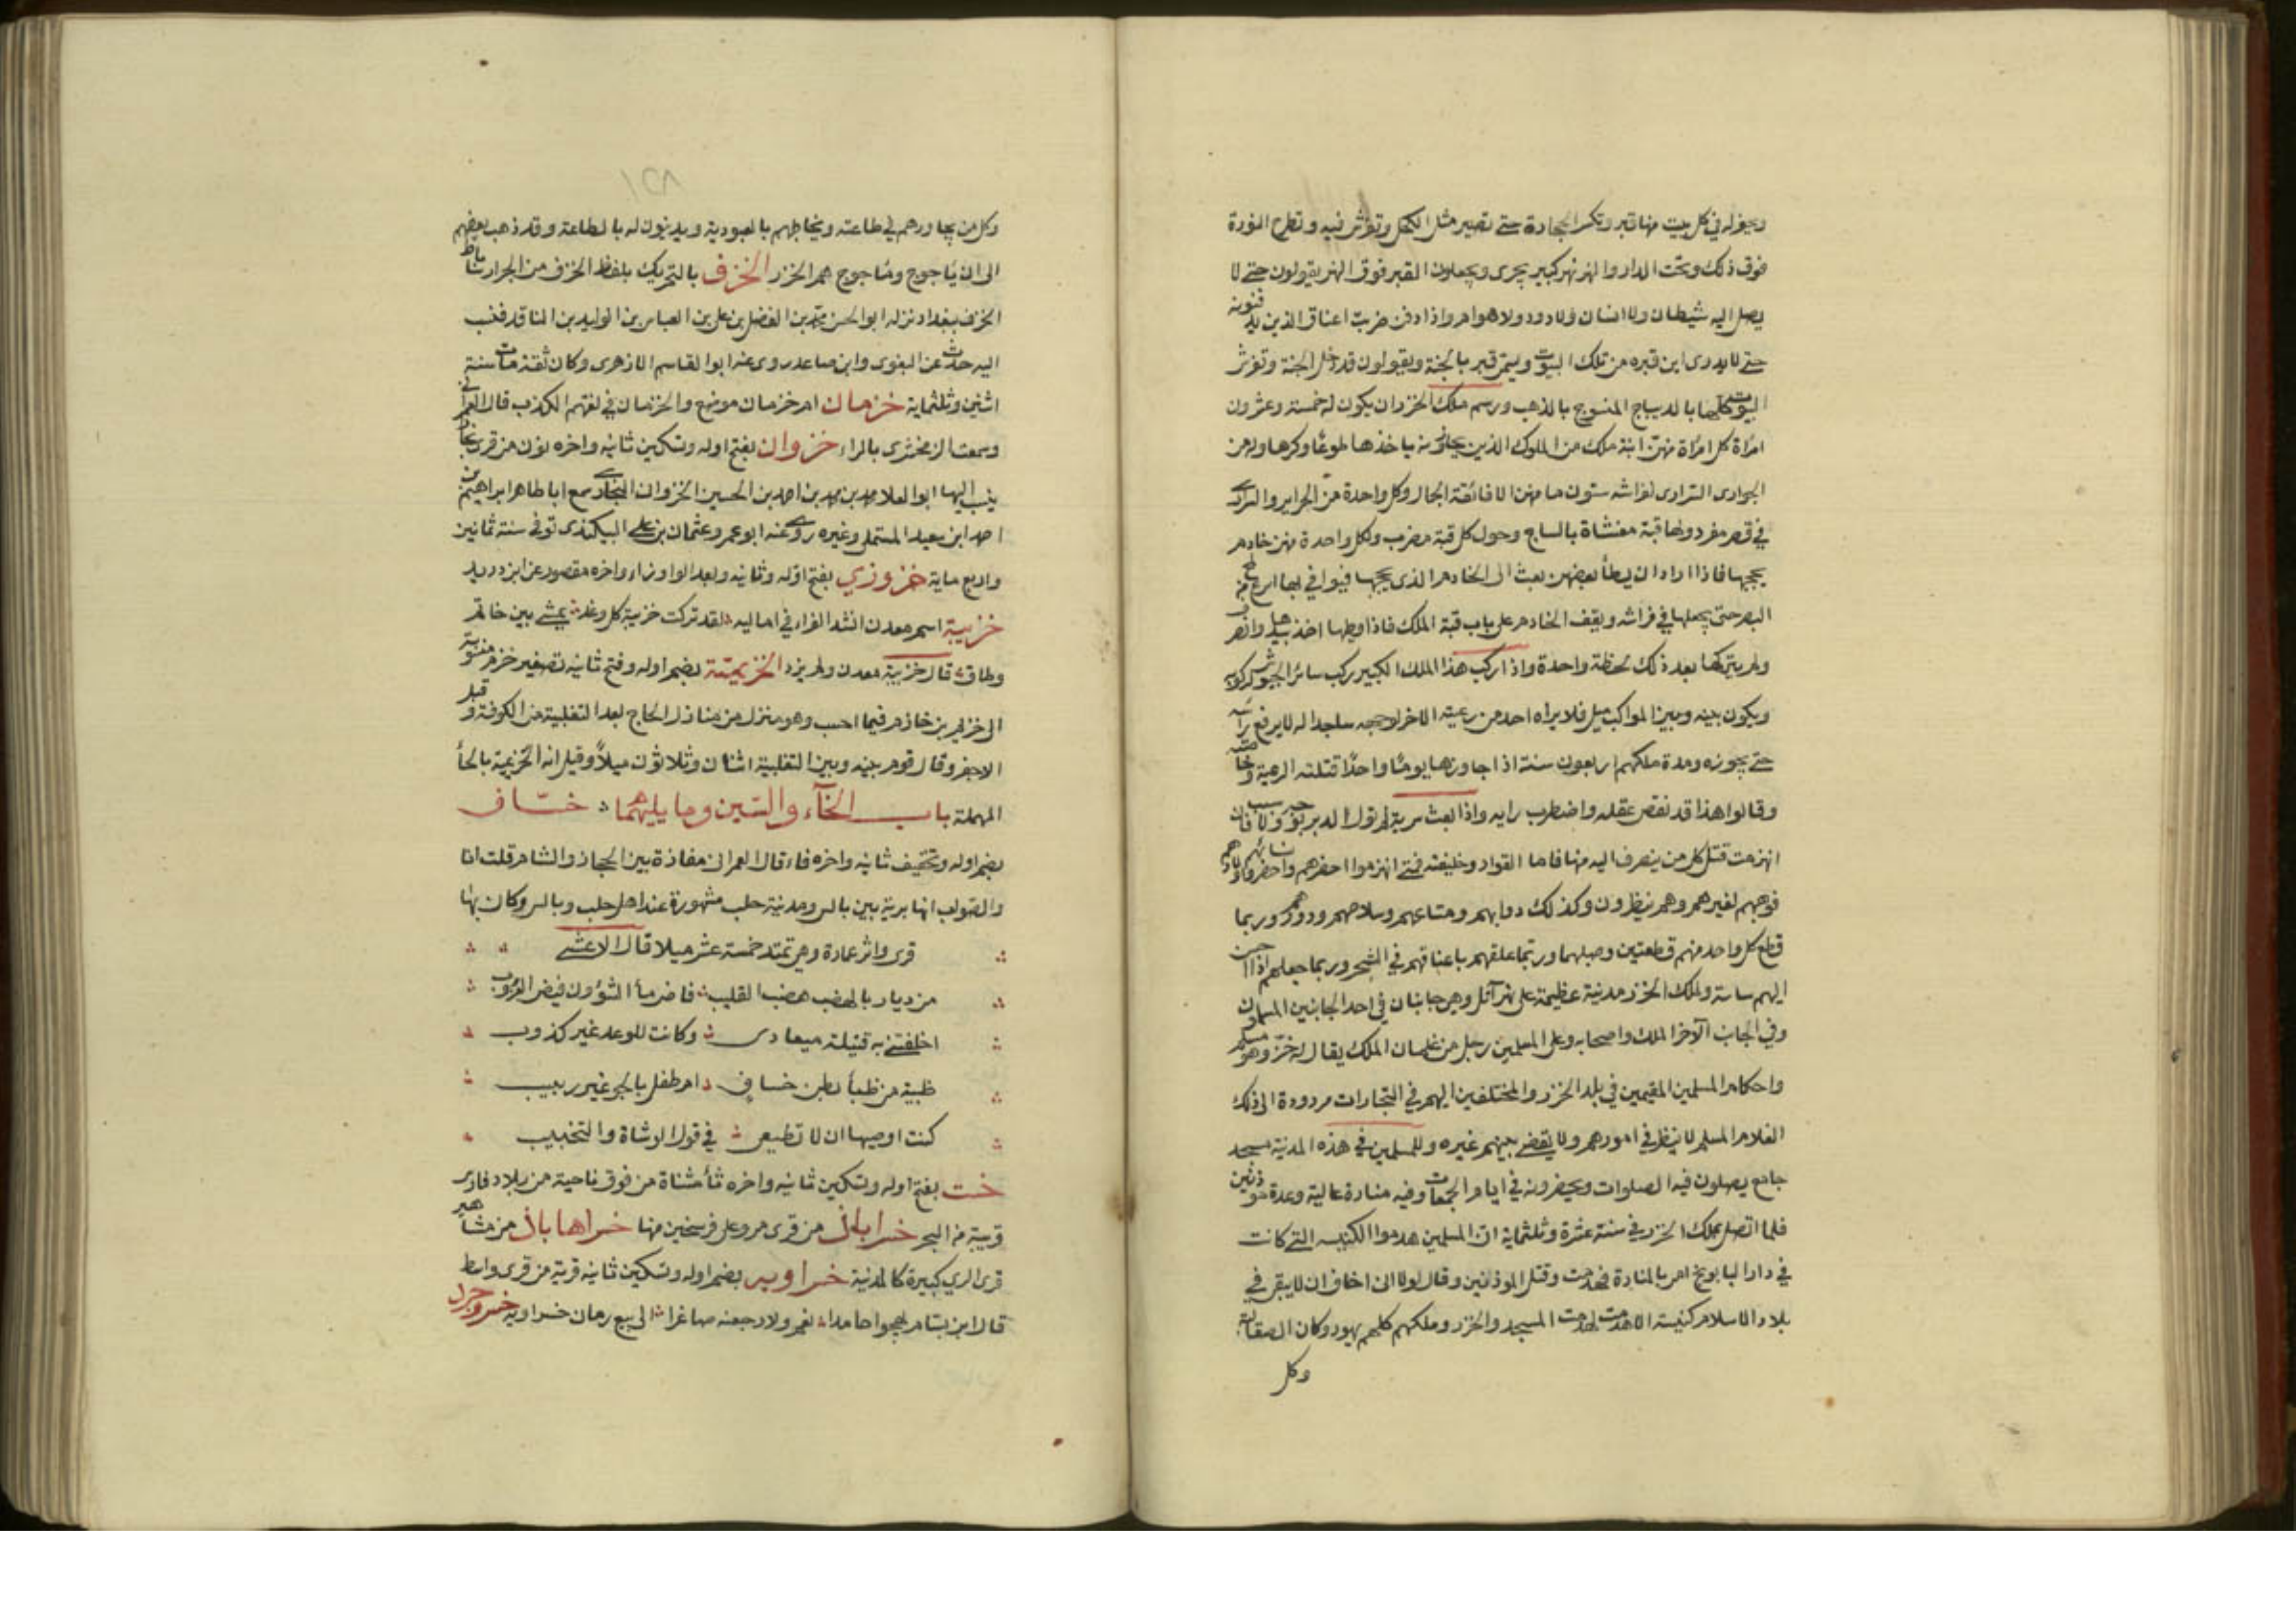 ويحفر له في كل بيت منها قبر وتكسر الحجارة حتى تصير مثل الكحل وتفرش فيه وتطرح النورة
فوق ذلك وتحت الدار والنهر نهر كبير يجرى ويجعلون القبر فوق النهر يقولون حتى لا
يصل اليه شيطان ولا انسان ولا دود ولا هوام واذا دفن ضربت اعناق الذين يدفنونه
حتى لا يدرى اين قبره من تلك البيوت ويسمى قبره بالجنة ويقولون قد دخل الجنة وتفرش
البيوت كلها بالديباج المنسوج بالذهب ورسم ملك الخزر ان يكون له خمسة وعشرون
امرأة كل امرأة منهن ابنة ملك من الملوك الذين يحاذونه ياخذها طوعًا وكرها وله من
الجوارى السرارى لفراشه ستون ما منهن الا فائقة الجمال وكل واحدة من الحراير والسرارى
في قصر مفرد ولها قبة مغشاة بالساج وحول كل قبة مضرب ولكل واحدة منهن خادم
يحجبها فاذا اراد ان يطأ بعضهن بعث الى الخادم الذى يحجبها فيوافي بها اسرع من لمح
البصر حتى يجعلها في فراشه ويقف الخادم على باب قبة الملك فاذا وطيها اخذ بيدها وانصرف
ولم يتركها بعد ذلك لحظة واحدة واذا ركب هذا الملك الكبير ركب سائر الجيوش لركوبه
ويكون بينه وبين المواكب ميل فلا يراه احد من رعيته الا خر لوجهه ساجدا له لا يرفع راسه
حتى يجوزه ومدة ملكهم اربعون سنة اذا جاوزها يومًا واحدًا قتلته الرعية وخاصته
وقالوا هذا قد نقص عقله واضطرب رايه واذا بعث سرية لم تول الدبر بوجه ولا سبب فان
انهزمت قتل كل من ينصرف اليه منها فاما القواد وخليفته فمتى انهزموا احضرهم واحضر نسائهم واولادهم
فوهبهم لغيرهم وهم ينظرون وكذلك دوابهم ومتاعهم وسلاحهم ودورهم وربما
قطع كل واحد منهم قطعتين وصلبهما وربما علقهم باعناقهم في الشجر وربما جعلهم اذا احسن
اليهم ساسة ولملك الخزر مدينة عظيمة على نهر آتل وهي جانبان في احد الجانبين المسلمون
وفي الجانب الآخر الملك واصحابه وعلى المسلمين رجل من غلمان الملك يقال له خز وهو مسلم
واحكام المسلمين المقيمين في بلد الخزر والمختلفين اليهم في التجارات مردودة الى ذلك
الغلام المسلم لا ينظر في امورهم ولا يقضى بينهم غيره وللمسلمين في هذه المدينة مسجد
جامع يصلون فيه الصلوات ويحضرونه في ايام الجمعات وفيه منارة عالية وعدة مؤذنين
فلما اتصل بملك الخزر في سنة عشرة وثلثماية ان المسلمين هدموا الكنيسه التي كانت
في دار البابونج امر بالمنارة فهدمت وقتل الموذنين وقال لولا انى اخاف ان لا يبقى في
بلاد الاسلام كنيسة الا هدمت لهدمت المسجد والخزر وملكهم كلهم يهود وكان الصقالبة
وكل
١٢٨
وكل من يجاورهم في طاعته ويخاطبهم بالعبودية ويدينون له بالطاعة وقد ذهب بعضهم
الى ان ياجوج وماجوج هم الخزر الخزف بالتحريك بلفظ الخزف من الجرار ساباط
الخزف ببغداد نزله ابو الحسن محمد بن الفضل بن على بن العباس بن الوليد بن الناقد فنسب
اليه حدث عن البغوى وابن صاعد روى عنه ابوا القاسم الازهرى وكان ثقة مات سنة
اثنين وثلثماية خزمان ام خزمان موضع والخزمان في لغتهم الكذب قال العمرانى
وسمعت الزمخشرى بالراء خزوان بفتح اوله وتسكين ثانيه واخره نون من قرى بخارا
ينسب اليها ابو العلا محمد بن محمد بن احمد بن الحسين الخزوان البخارى سمع ابا طاهر ابراهيم بن
احمد ابن سعيد المستملى وغيره روى عنه ابو عمرو عثمان بن على البيكندى توفى سنة ثمانين
واربع ماية خزوزي بفتح اوله وثانيه وبعد الواو زاء واخره مقصور عن ابن دريد
خزيبة اسم معدن انشد الفراء في اماليه لقد تركت خزيبة كل وغد يمشى بين خاتم
وطاق قال خزيبة معدن ولم يزد الخزيميّة بضم اوله وفتح ثانيه تصغير خزم منسوبة
الى خزيم بن خازم فيما احسب وهو منزل من منازل الحاج بعد الثعلبية من الكوفة وقبل
الاجفر وقال قوم بينه وبين الثعلبية اثنان وثلاثون ميلاً وقيل انه الحزيمية بالحأ
المهملة باب الخآء والسّين وما يليهما خسّاف
بضم اوله وتخفيف ثانيه واخره فاء قال العمرانى مفازة بين الحجاز والشام قلت انا
والصواب انها برية بين بالس ومدينة حلب مشهورة عند اهل حلب وبالس وكان بها
قرى واثر عمارة وهي تمتد خمسة عشر ميلا قال الاعشى
من ديار بالهضب هضب القليب فاض مأ الشؤون فيض الغروب
اخلفتنى به قتيلة ميعادى وكانت للوعد غير كذوب
ظبية من ظبأ بطن خساف ام طفل بالجو غير ربيب
كنت اوصيها ان لا تطيعى في قول الوشاة والتخبيب
خست بفتح اوله وتسكين ثانيه واخره تأ مثناة من فوق ناحية من بلاد فارس
قريبة من البحر خسراباذ من قرى مرو على فرسخين منها خسراهاباذ من مشاهير
قرى الري كبيرة كالمدينة خسراويه بضم اوله وتسكين ثانيه قرية من قرى واسط
قال ابن بسام يهجوا حامدا نعم ولارجعنه صاغرا الى بيع رمان خسراويه خسروجرد